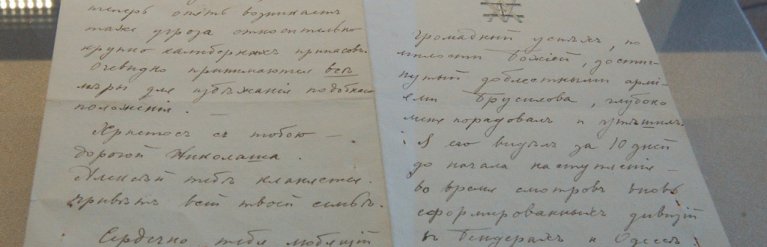 теперь опять возникаетъ
таже угроза относительно
крупно калиберныхъ припасовъ.
Очевидно принимаются все
мѣры для избѣжанія подобнаго
положенія —
Христосъ съ тобою —
дорогой Николаша.
Алексѣй тебѣ кланяется
привѣтъ всей твоей семьѣ.
Сердечно тебя любящій
громадный успѣхъ, по
милости Божіей, достиг-
нутый доблестными армі-
ями Брусилова, глубоко
меня порадовалъ и утѣшилъ.
Я его видѣлъ за 10 дней
до начала наступленія —
во время смотровъ вновь
сформированныхъ дивизій
въ Бендерахъ и Одессѣ